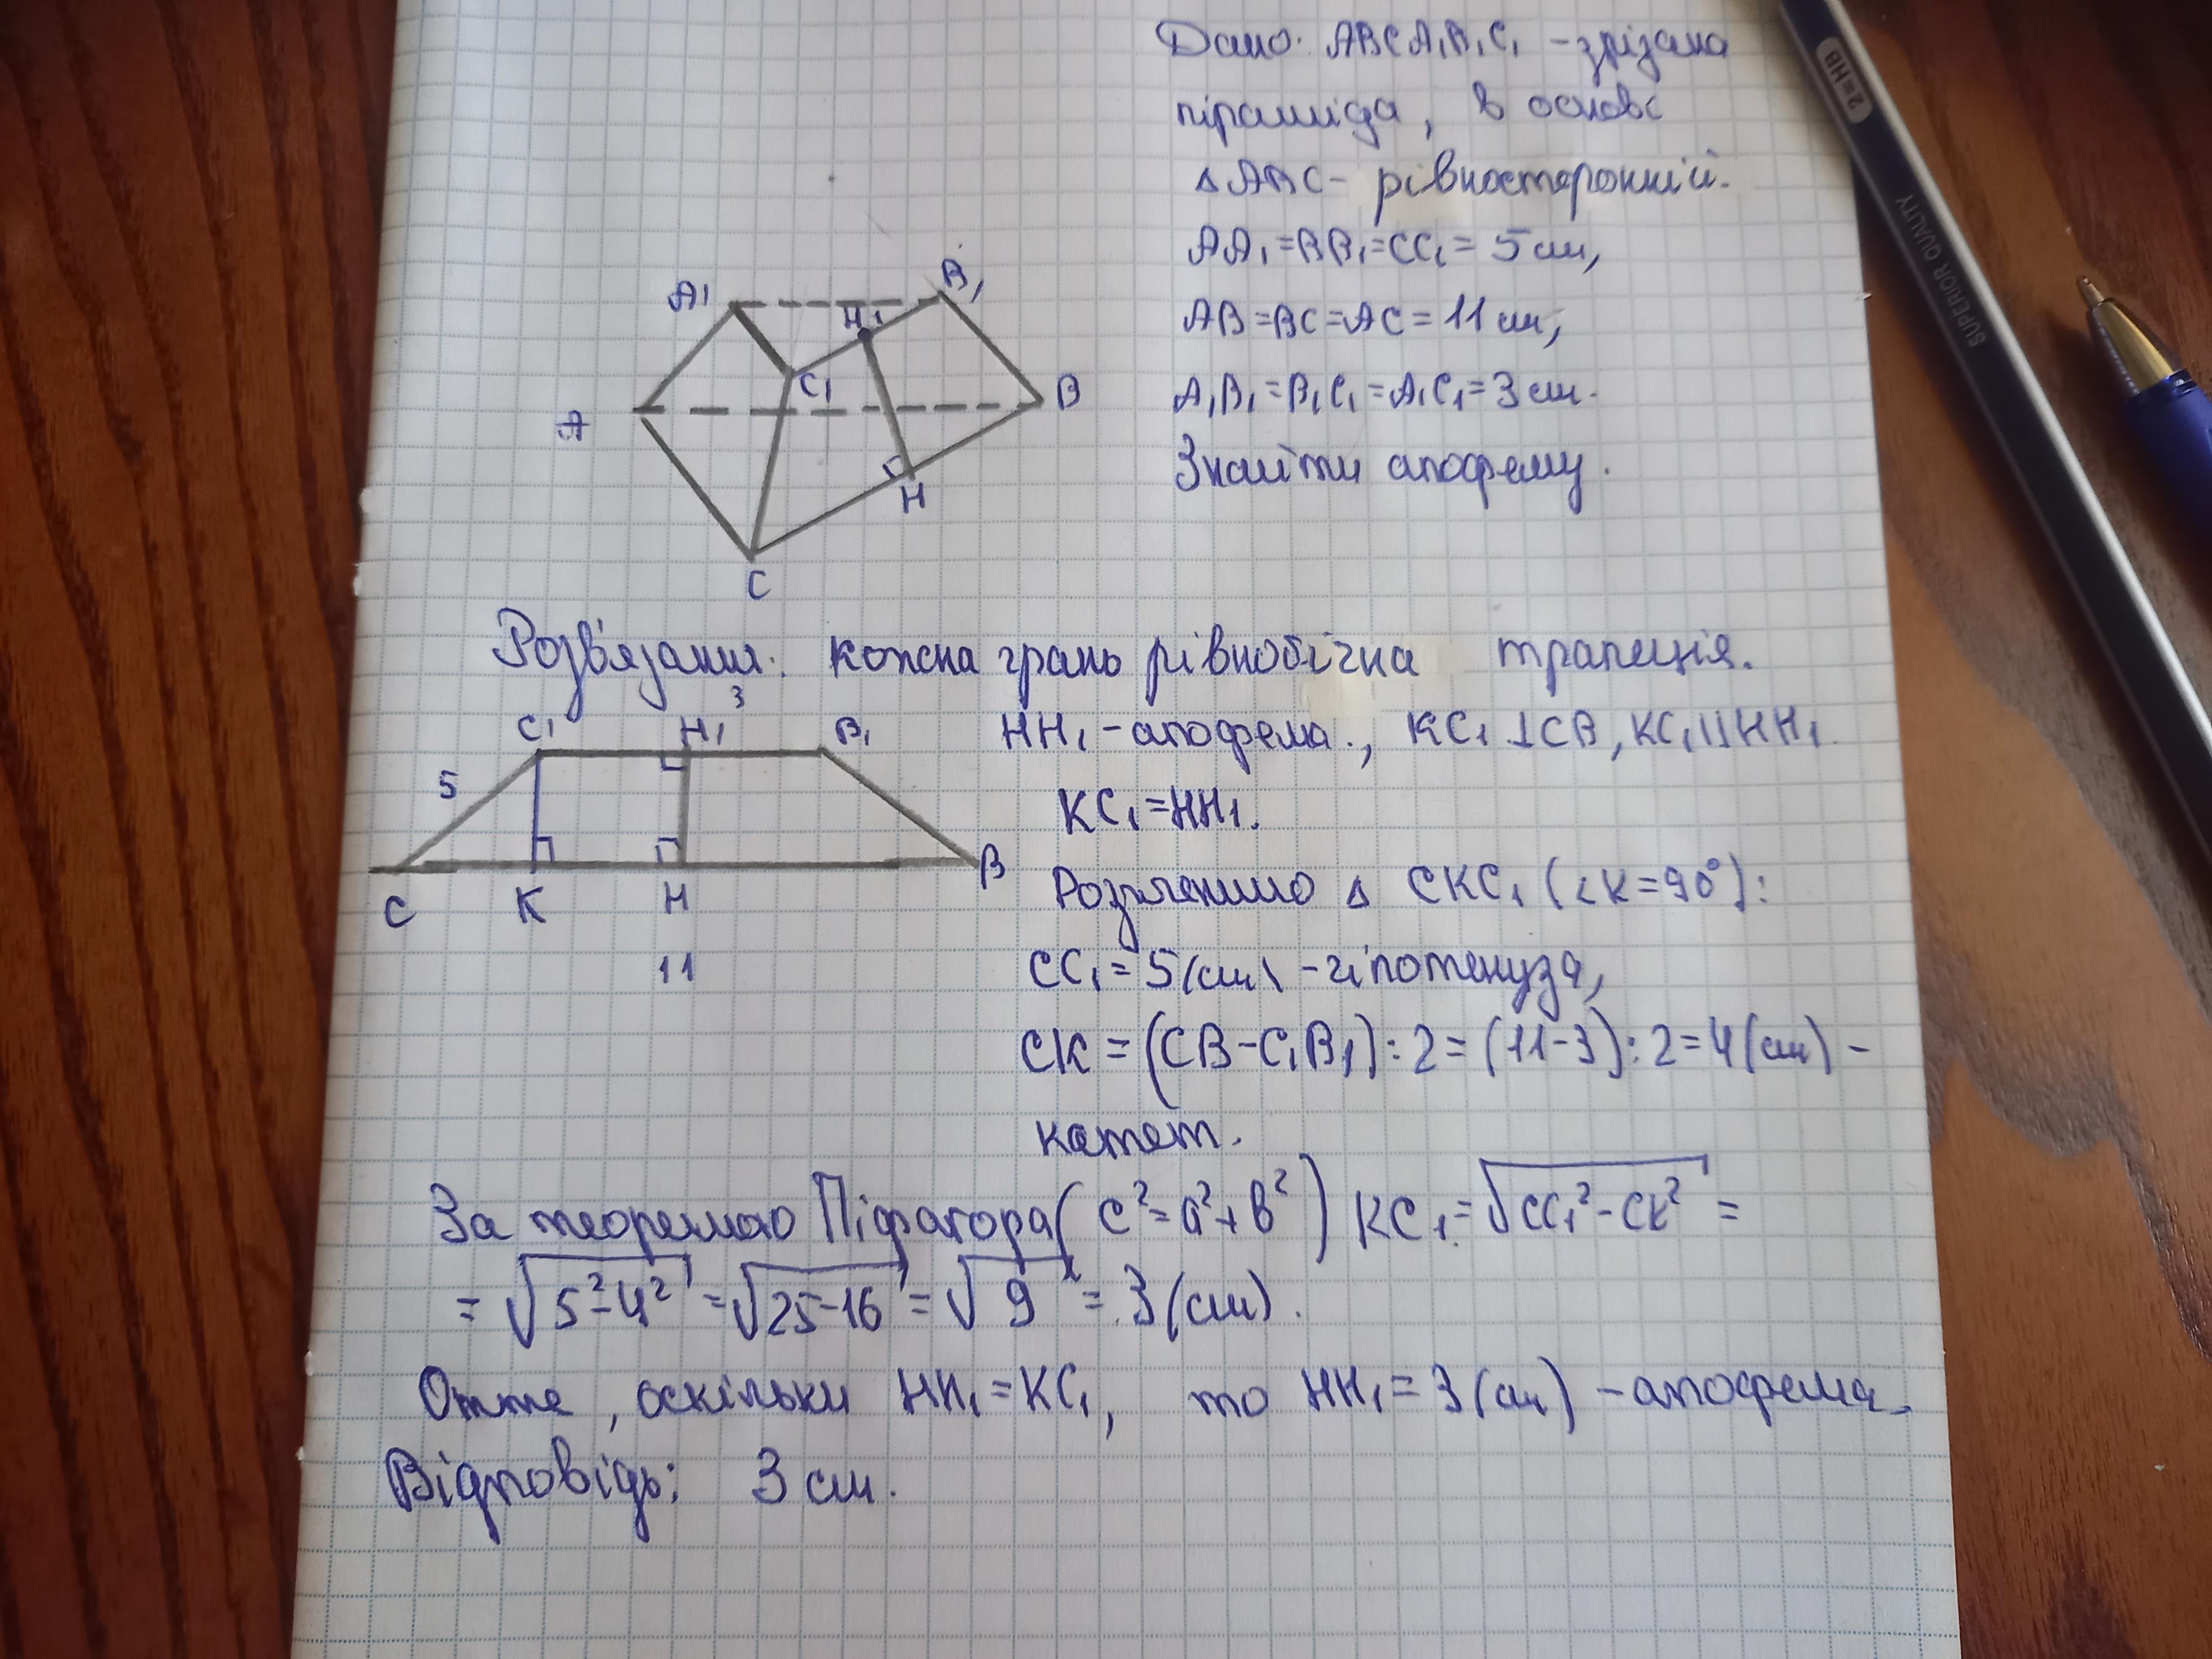 Дано: ABCA₁B₁C₁ - зрізана
піраміда, в основі
△ABC - рівносторонній.
AA₁=BB₁=CC₁= 5 см,
AB=BC=AC=11 см,
A₁B₁=B₁C₁=A₁C₁=3 см.
Знайти апофему.
A₁
B₁
H₁
C₁
A
B
H
C
Розв'язання: кожна грань рівнобічна трапеція.
3
C₁ H₁ B₁
5
C K H B
11
HH₁ - апофема., KC₁⊥CB, KC₁||HH₁.
KC₁=HH₁.
Розглянемо △ CKC₁ (∠K=90°):
CC₁= 5(см) - гіпотенуза,
CK = (CB-C₁B₁):2=(11-3):2=4(см) -
катет.
За теоремою Піфагора(c²=a²+b²) KC₁=√CC₁²-CK² =
=√5²-4²=√25-16=√9=3(см).
Отже, оскільки HH₁=KC₁, то HH₁=3(см) - апофема.
Відповідь: 3 см.
2=HB
SUPERIOR QUALITY